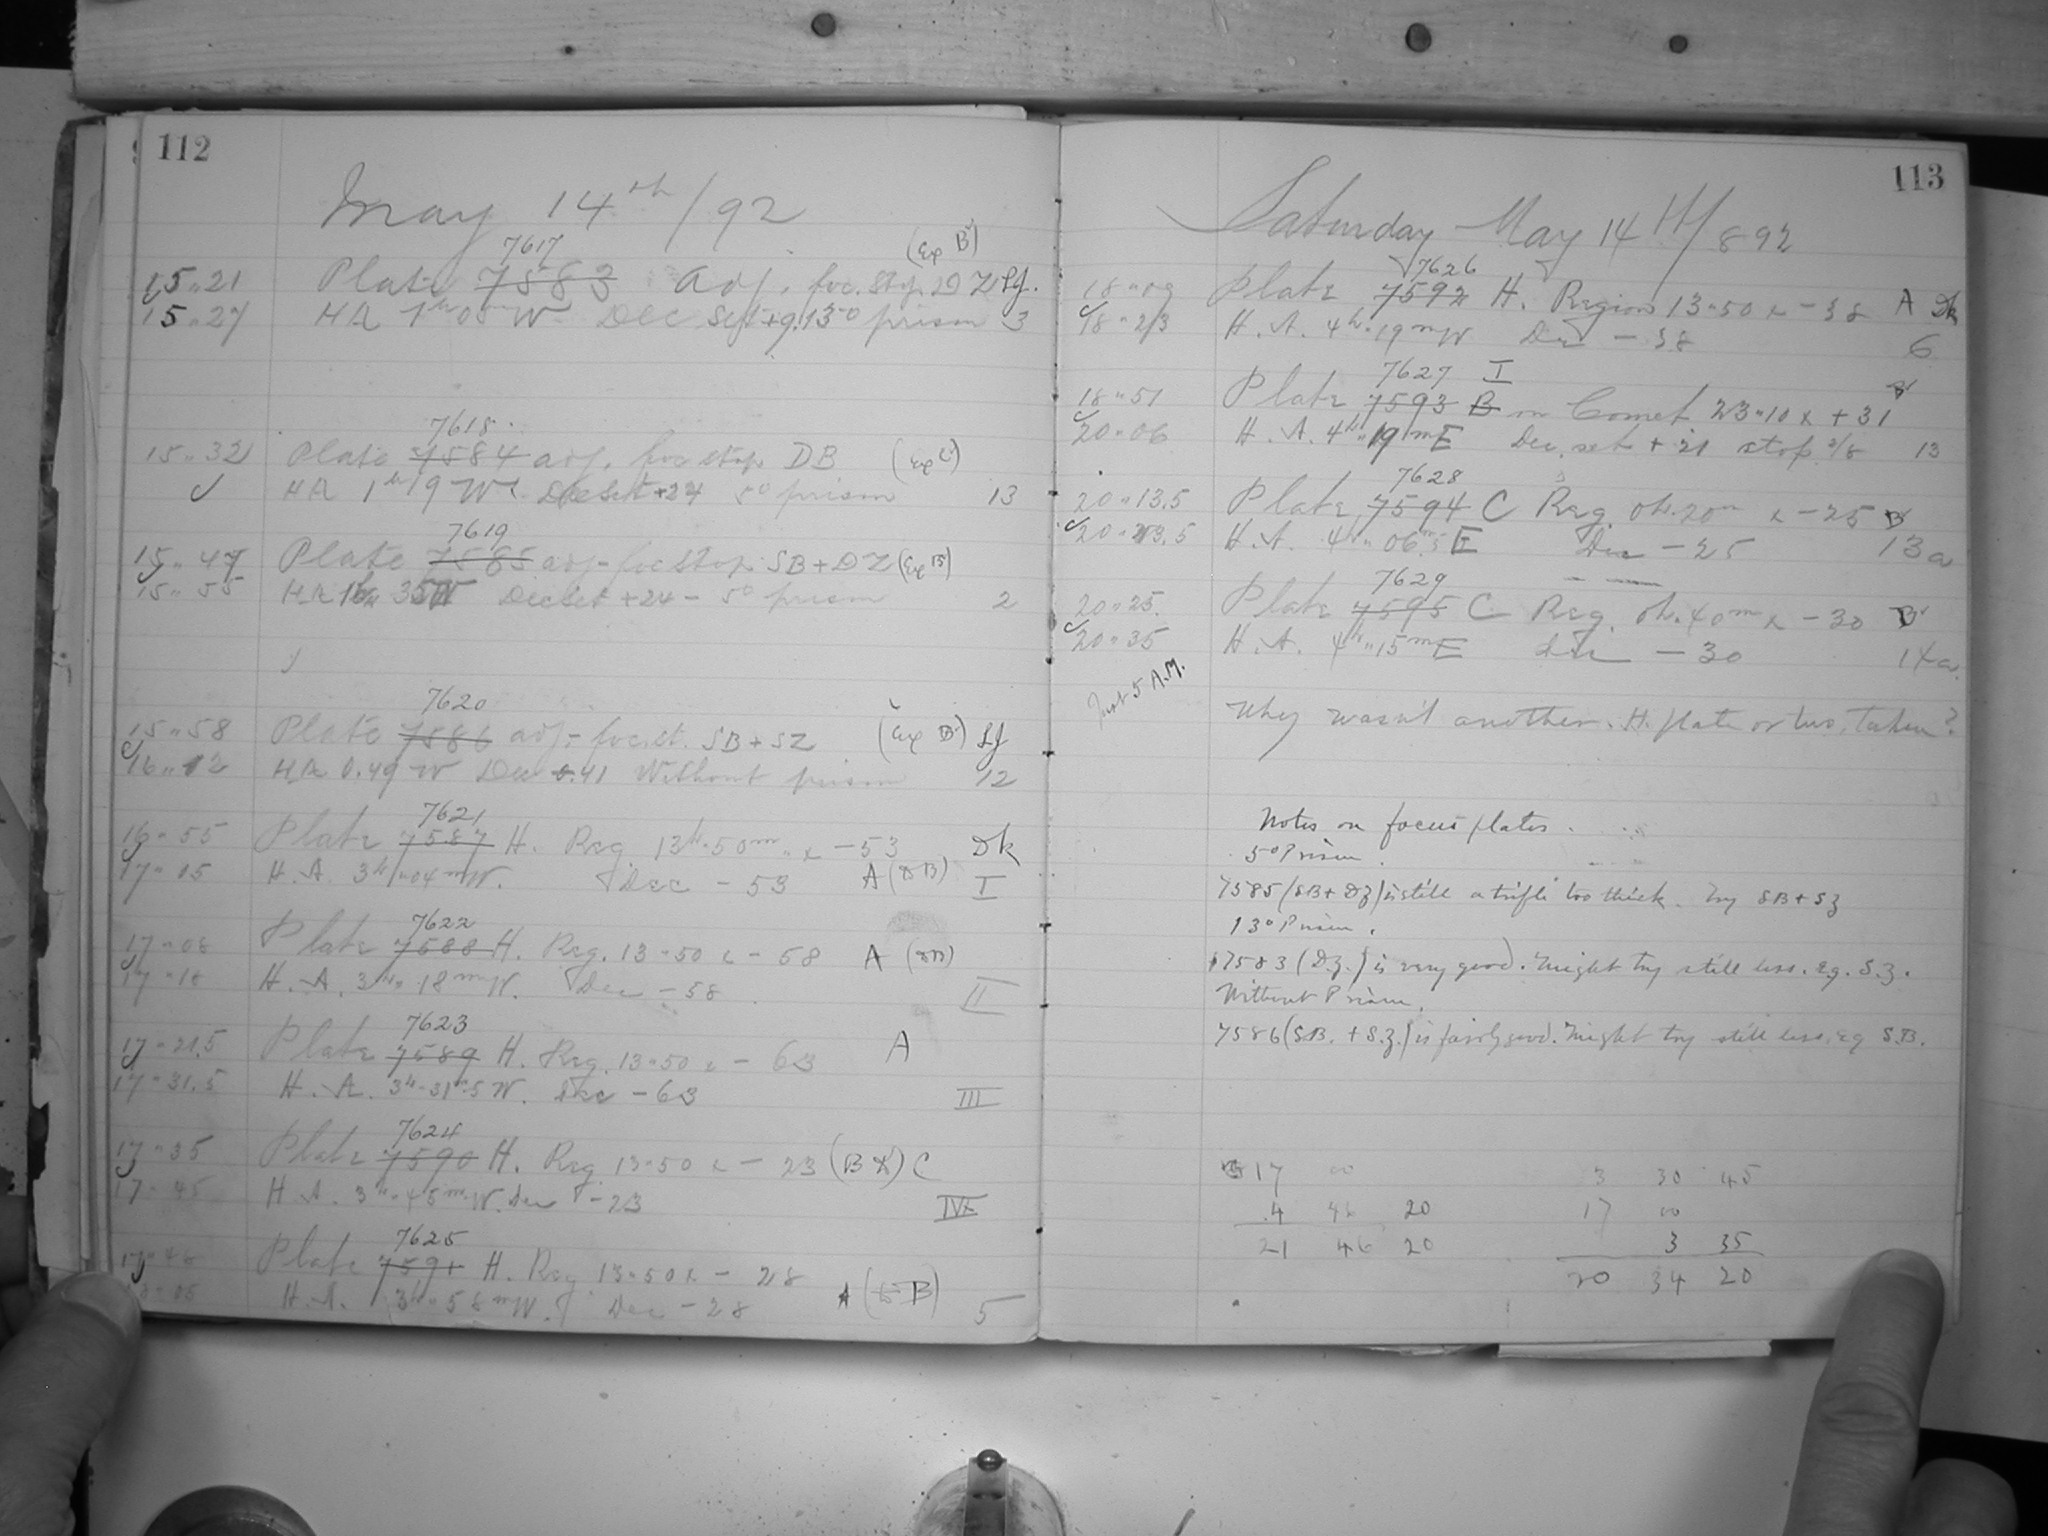 112
May 14th/92
7617 (Exp B)
15"21 Plate 7583 Adj. foc. Stop. DZ
15"27 HA 1h"05 W Dec Set +9. 13° prism 3
7618
15"32 Plate 7584 adj. foc stop DB (Exp C)
HA 1h 19 W Dec Set +24 5° prism 13
7619
15"47 Plate 7585 adj. foc Stop. SB+DZ (Exp B)
15"55 HA 1h 35 W Dec Set +24 - 5° prism 2
7620
15"58 Plate 7586 adj. foc. st. SB+SZ (Exp B)
16"12 HA 0.49 W Dec 0.41 Without prism 12
7621
16"55 Plate 7587 H. Reg. 13h"50m x - 53 Dk
17"05 H. A. 3h"04m W. Dec - 53 A (DB) I
7622
17"08 Plate 7588 H. Reg. 13"50 x - 58 A (DB)
17"18 H. A. 3h"18m W. Dec - 58 II
7623
17"21.5 Plate 7589 H. Reg. 13"50 x - 63 A
17"31.5 H. A. 3h"31m.5 W. Dec - 63 III
7624
17"35 Plate 7590 H. Reg. 13"50 x - 23 (B) C
17"45 H. A. 3h"45m W. Dec - 23 IV
7625
17"48 Plate 7591 H. Reg 13"50 x - 28
H. A. 3h"58m W. Dec - 28 A (B) 5
113
Saturday May 14th/892
7626
18"09 Plate 7592 H. Region 13"50 x - 38 A Dk
18"23 H. A. 4h"19m W Dec - 38 6
7627 I
18"51 Plate 7593 B on Comet 23"10 x + 31
20"06 H. A. 4h"19m E Dec, set + 21 stop 2/8 13
7628
20"13.5 Plate 7594 C Reg. 0h.20m x - 25 B
20"23.5 H. A. 4h"06m.5 E Dec - 25 13a
7629
20"25 Plate 7595 C Reg. 0h.40m x - 30
20"35 H. A. 4h"15m E Dec - 30 14a
Just 5 A.M.
Why wasn't another H. plate or two, taken?
Notes on focus plates.
5° Prism.
7585 (SB+DZ) is still a trifle too thick. Try SB+SZ
13° Prism.
7583 (D.Z.) is very good. Might try still less. Eg. S.Z.
Without Prism.
7586 (S.B. + S.Z.) is fairly good. Might try still less, eg S.B.
17 00 3 30 45
4 46 20 17 00
21 46 20 3 35
20 34 20